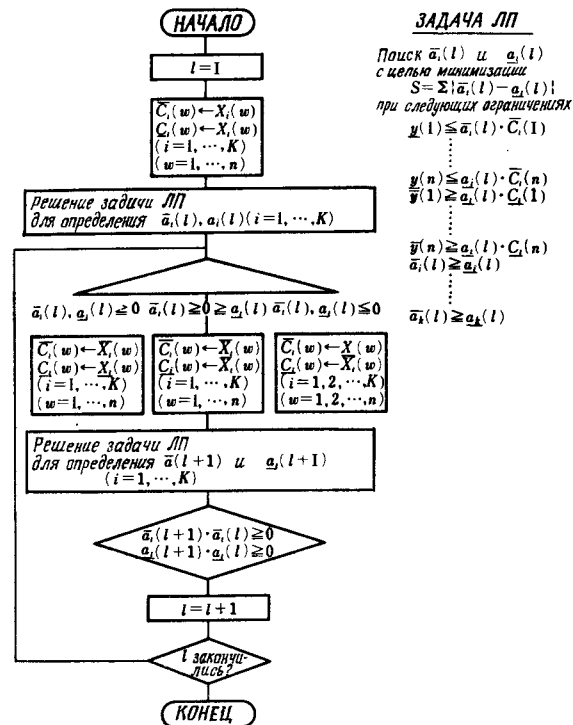 НАЧАЛО
l=I
C̅ᵢ(w)←Xᵢ(w)
C̲ᵢ(w)←Xᵢ(w)
(i=1, ···,K)
(w=1, ···,n)
Решение задачи ЛП
для определения a̅ᵢ(l), aᵢ(l)(i=1, ···,K)
a̅ᵢ(l), a̲ᵢ(l)≧0 a̅ᵢ(l)≧0≧a̲ᵢ(l) a̅ᵢ(l), a̲ᵢ(l)≦0
C̅ᵢ(w)←X̅ᵢ(w)
C̲ᵢ(w)←X̲ᵢ(w)
(i=1, ···,K)
(w=1, ···,n)
C̅ᵢ(w)←X̅ᵢ(w)
C̲ᵢ(w)←X̅ᵢ(w)
(i=1, ···,K)
(w=1, ···,n)
C̅ᵢ(w)←X̲(w)
C̲ᵢ(w)←X̅(w)
(i=1,2, ···,K)
(w=1,2, ···,n)
Решение задачи ЛП
для определения a̅(l+1) и a̲ᵢ(l+I)
(i=1, ···,K)
a̅ᵢ(l+1)·a̅ᵢ(l)≧0
a̲ᵢ(l+1)·a̲ᵢ(l)≧0
l=l+1
l закончи-
лись?
КОНЕЦ
ЗАДАЧА ЛП
Поиск a̅ᵢ(l) и a̲ᵢ(l)
с целью минимизации
S=Σ|a̅ᵢ(l)−a̲ᵢ(l)|
при следующих ограничениях
y̲(1)≦a̅ᵢ(l)·C̅ᵢ(I)
y̲(n)≦a̲ᵢ(l)·C̅ᵢ(n)
y̅(1)≧a̲ᵢ(l)·C̲ᵢ(1)
y̅(n)≧a̲ᵢ(l)·C̲ᵢ(n)
a̅ᵢ(l)≧a̲ᵢ(l)
a̅ₖ(l)≧a̲ₖ(l)